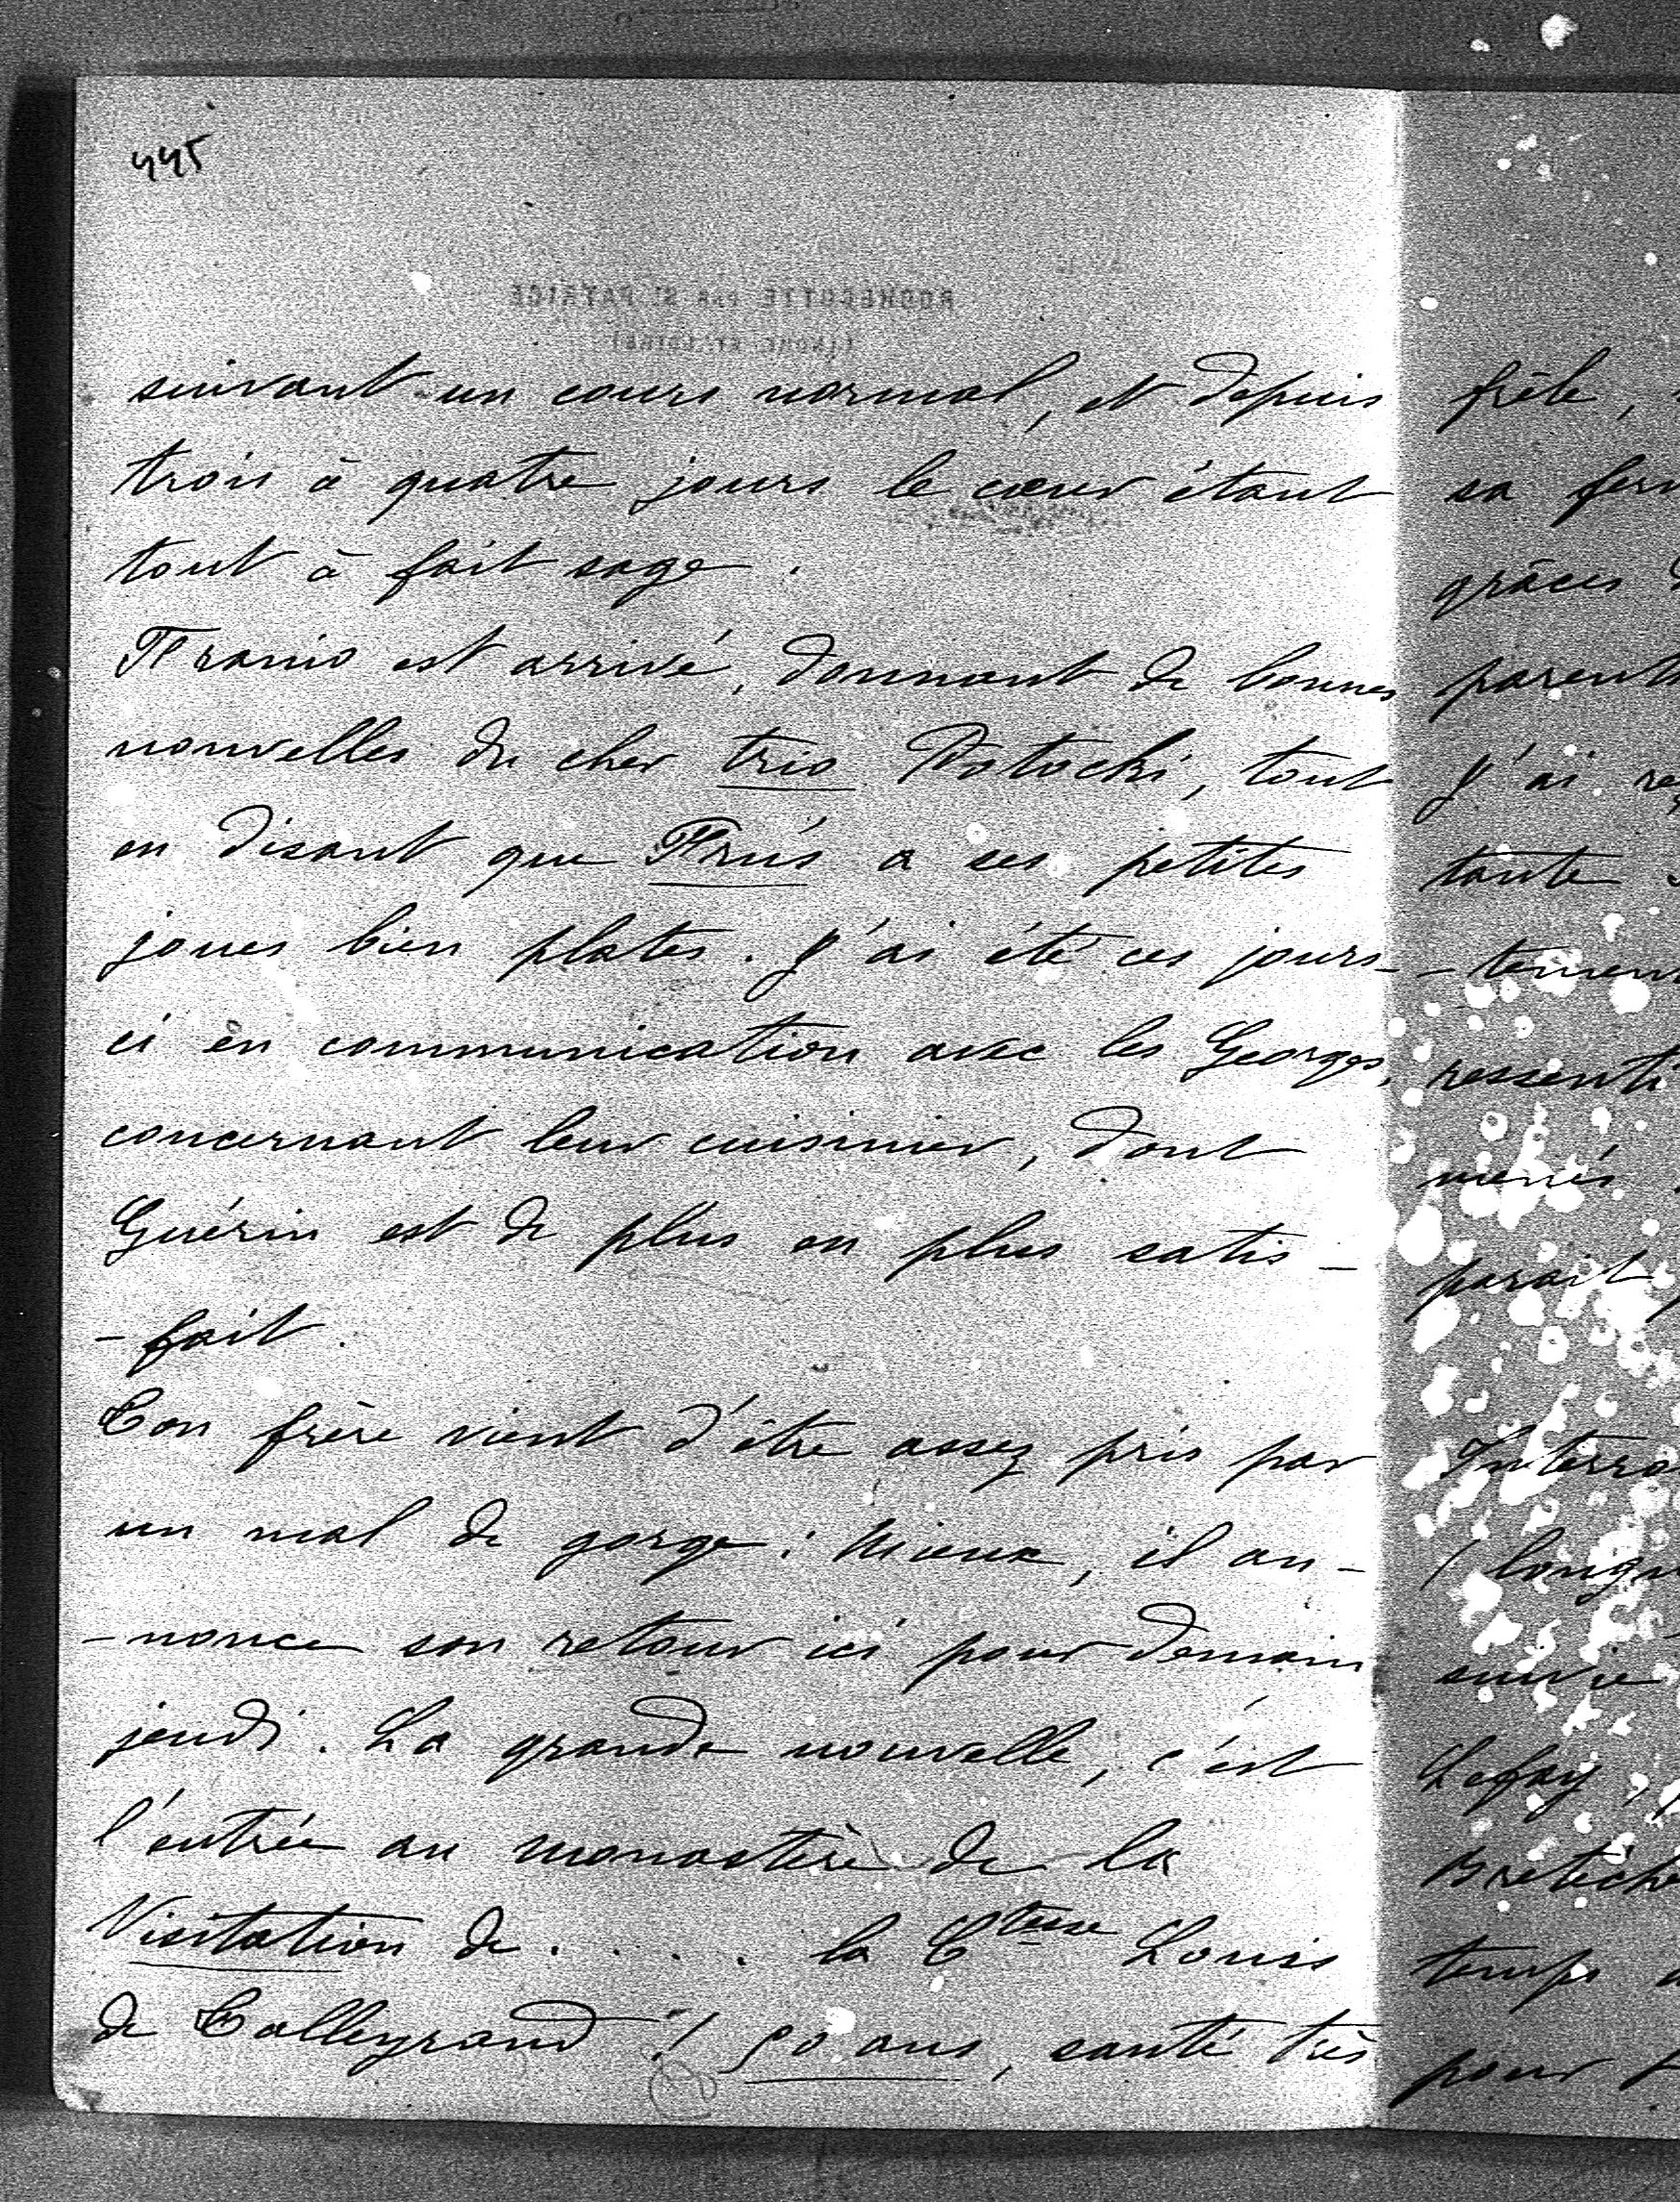 445
ROCHECOTTE PAR St PATRICE
(INDRE ET LOIRE)
suivant un cours normal, et depuis
trois à quatre jours le cœur étant
tout à fait sage.
Franio est arrivé, donnant de bonnes
nouvelles du cher trio Potocki, tout
en disant que Frus a ses petites
joues bien plates. J'ai été ces jours-
ci en communication avec les Georges,
concernant leur cuisinier, dont
Guérin est de plus en plus satis-
-fait.
Ton frère vient d'être assez pris par
un mal de gorge ; Mieux, il an-
-nonce son retour ici pour demain
jeudi. La grande nouvelle, c'est
l'entrée au monastère de la
Visitation de . . . . la Ctesse Louis
de Talleyrand !! 50 ans, santé très
frêle,
sa
grâces
parents
J'ai
tante
-tement
ressenti
menés
parait
(
suivie
temps
pour